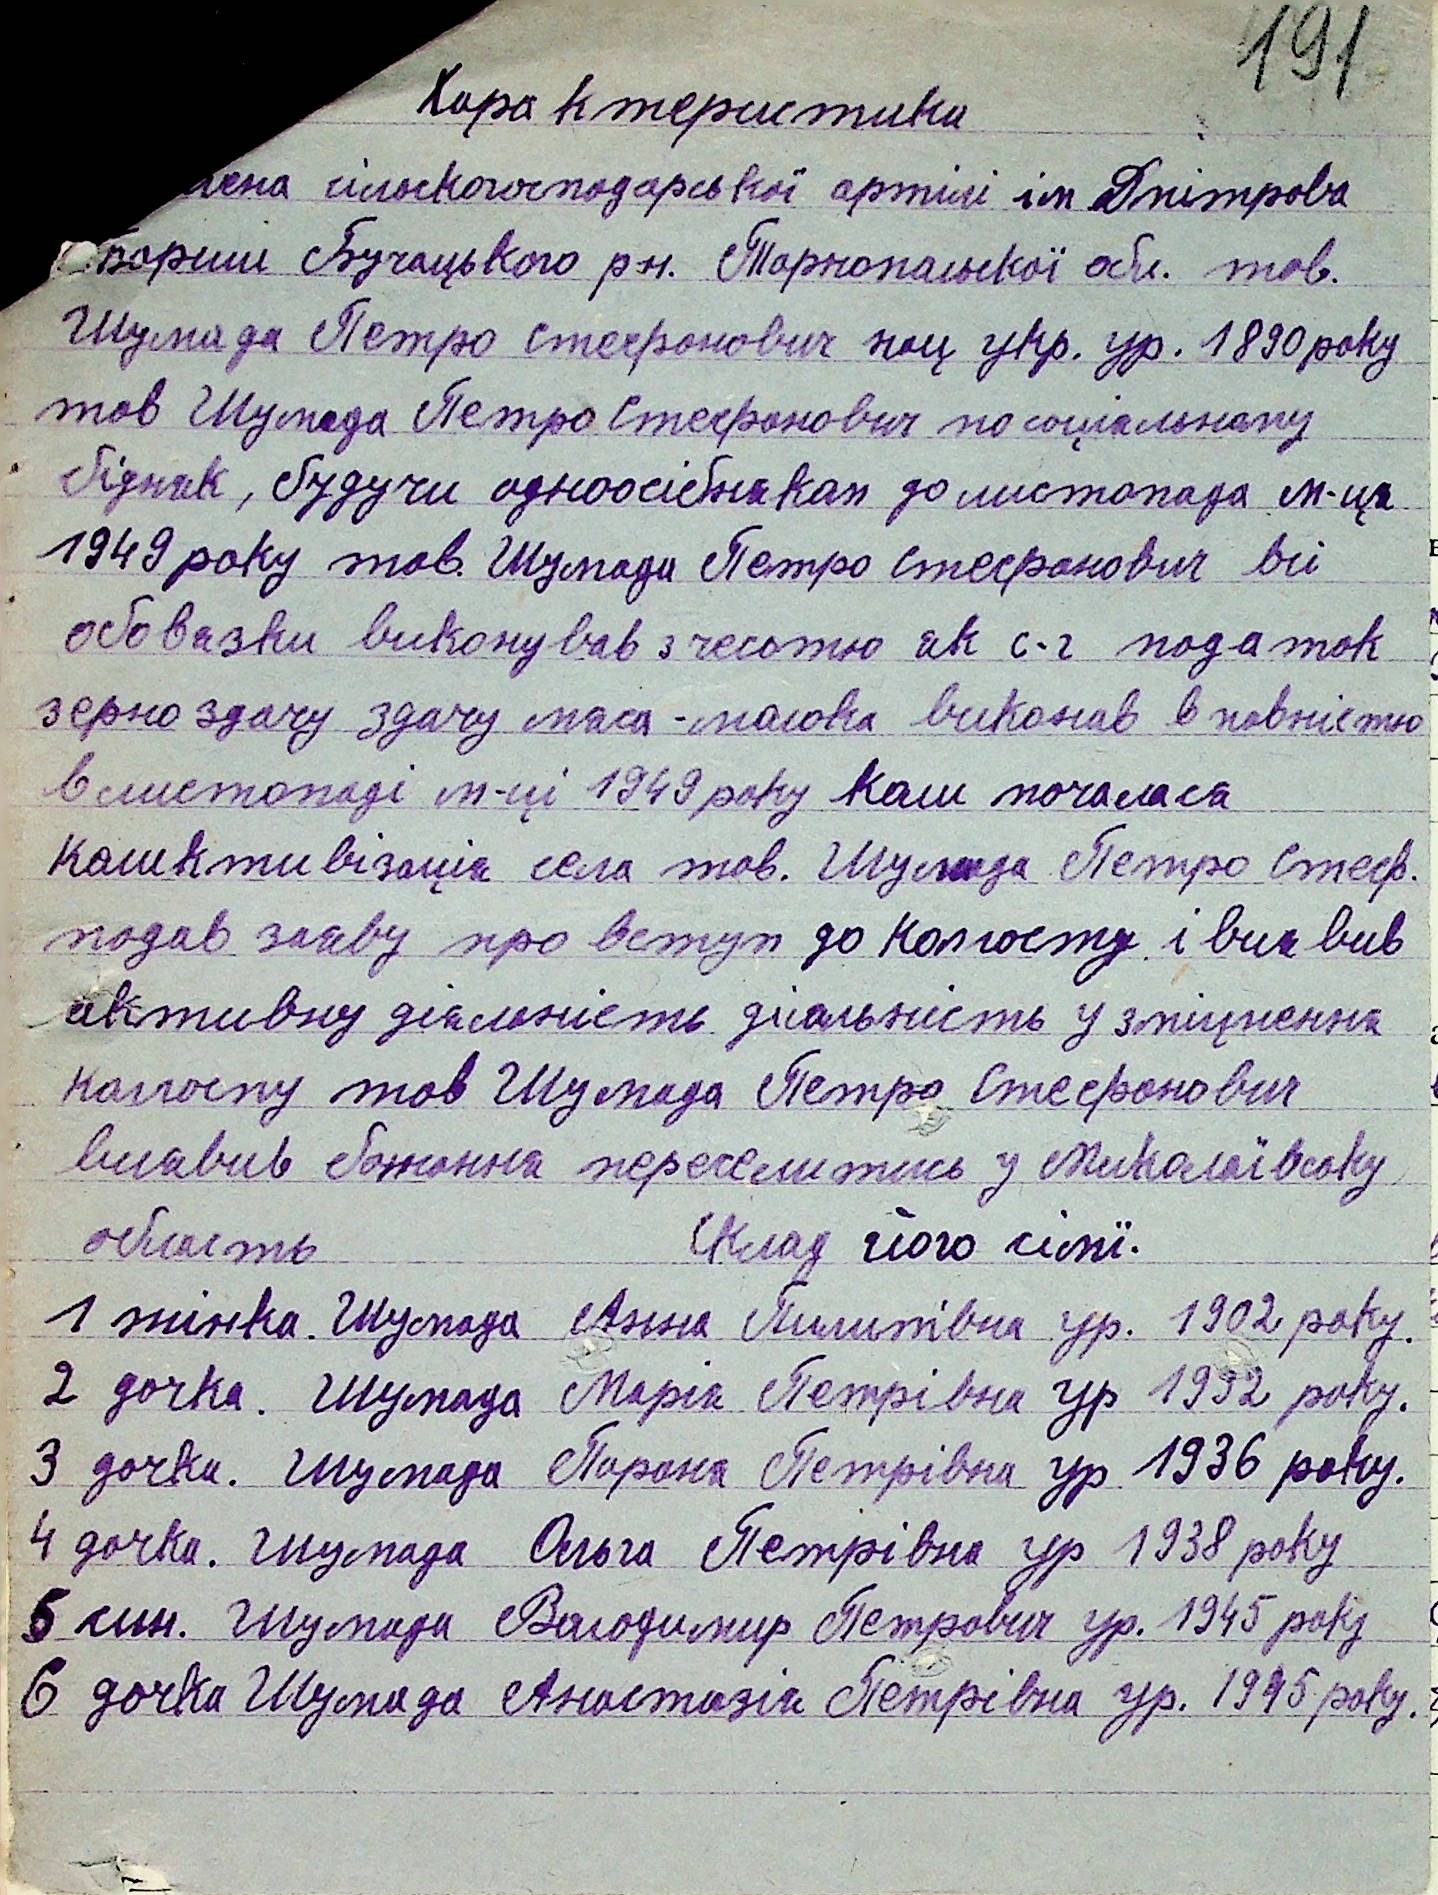 191
Характеристика
члена сільскогосподарської артілі ім Дмітрова
Бариш Бучацького р-н. Тарнопальскої обл. тов.
Шумада Петро Стефонович нац укр. ур. 1890 року
тов Шумада Петро Стефонович по соціальному
бідняк, будучи одноосібняком до листопада м-ця
1949 року тов. Шумада Петро Стефонович всі
обовязки виконував з честю як с-г податок
зерноздачу здачу мяса-молока виконав в повністю
в листопаді м-ці 1949 року коли почалася
колективізація села тов. Шумада Петро Стеф.
подав заяву про вступ до колгоспу і виявив
активну діяльність діяльність у зміцнення
колгоспу тов Шумада Петро Стефонович
виявив бажання переселитись у Миколаївську
область Склад його сімї.
1 жінка. Шумада Анна Пилипівна ур. 1902 року.
2 дочка. Шумада Марія Петрівна ур 1932 року.
3 дочка. Шумада Параня Петрівна ур 1936 року.
4 дочка. Шумада Ольга Петрівна ур 1938 року
5 син. Шумада Володимир Петрович ур. 1945 року
6 дочка Шумада Анастазія Петрівна ур. 1945 року.